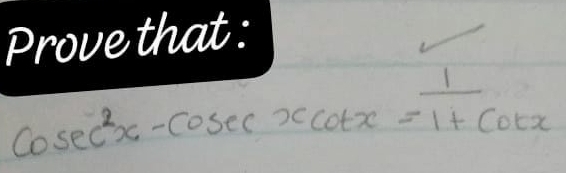 Prove that :
Cosec²x - Cosec x cotx = 1/1+ Cotx